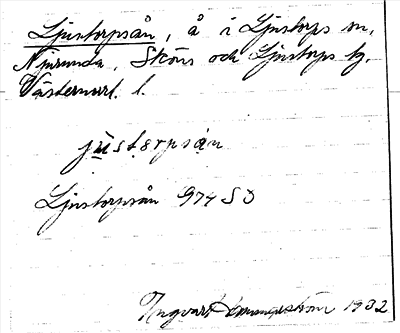 Ljustorpsån, å i Ljustorps sn,
Njurunda, Sköns och Ljustorps tg.
Västernorrl. l.
jùsto̱rpsa̱n
Ljustorpsån 974 SD
Ingvar 1932